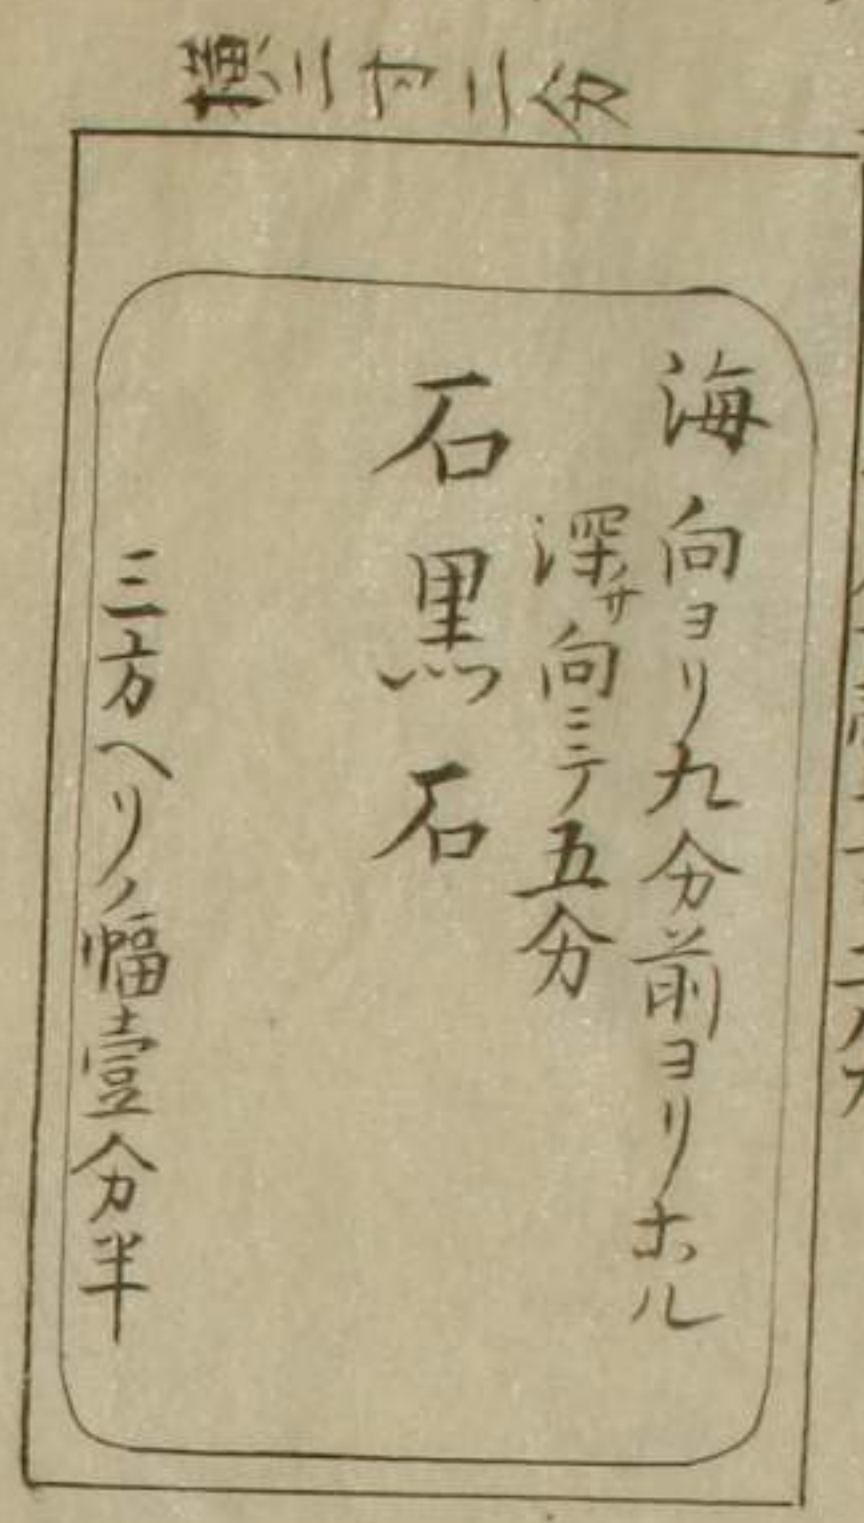 横二寸二分
海 向ヨリ九分前ヨリホル
深サ向ニテ五分
石黒石
三方ヘリノ幅壹分半